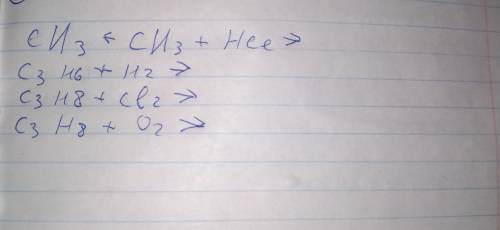 CH3 + CH3 + HCl >
C3 H6 + H2 >
C3 H8 + Cl2 >
C3 H8 + O2 >